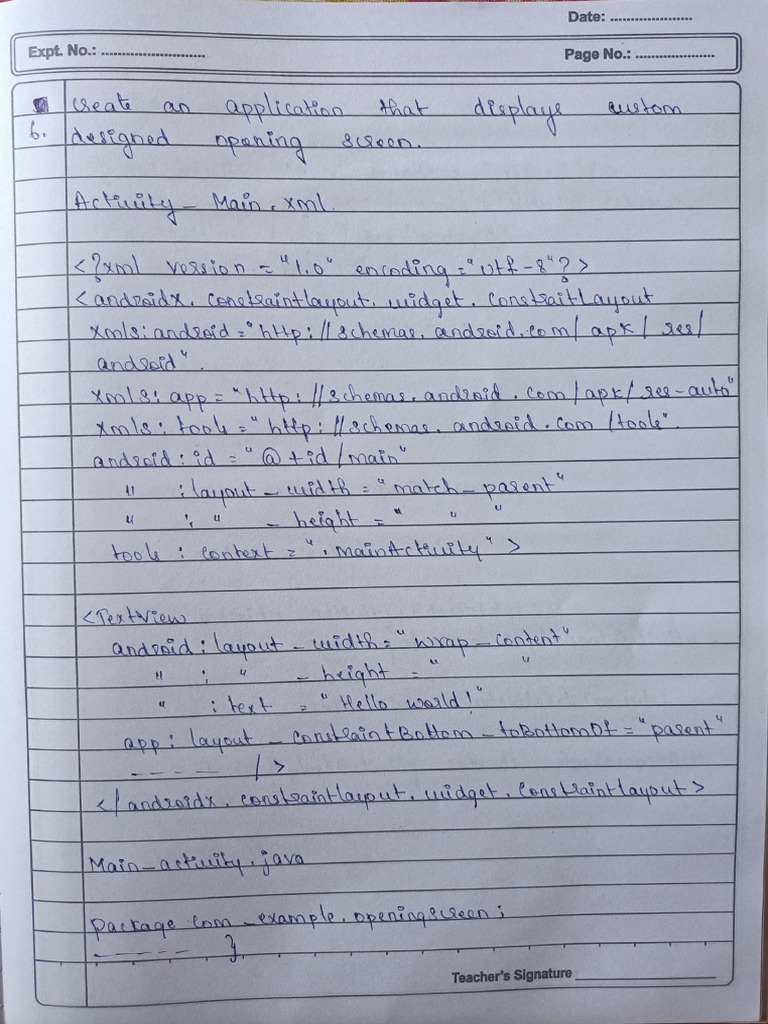 Date: .....................
Expt. No.: ...........................
Page No.: .....................
Create an application that displays custom
6. designed opening screen.
Activity_Main.xml.
<?xml version = "1.0" encoding = "utf-8"?>
<androidx.constraintlayout.widget.ConstraitLayout
xmls:android = "http://schemas.android.com/apk/res/
android".
xmls: app = "http://schemas.android.com/apk/res-auto"
xmls: tools = "http://schemas.android.com/tools".
android: id = "@+id/main"
" : layout_width = "match_parent"
" : " _ height = " " "
tools : context = ".mainActivity" >
<TextView
android: layout_width = "wrap_content"
" : " _ height = " "
" : text = "Hello world!"
app: layout_constraintBottom_toBottomOf = "parent"
_ _ _ _ _ />
</androidx.constraintlayout.widget.Constraintlayout>
Main_activity.java
package com_example.openingscreen;
_ _ _ _ _ }
Teacher's Signature ____________________